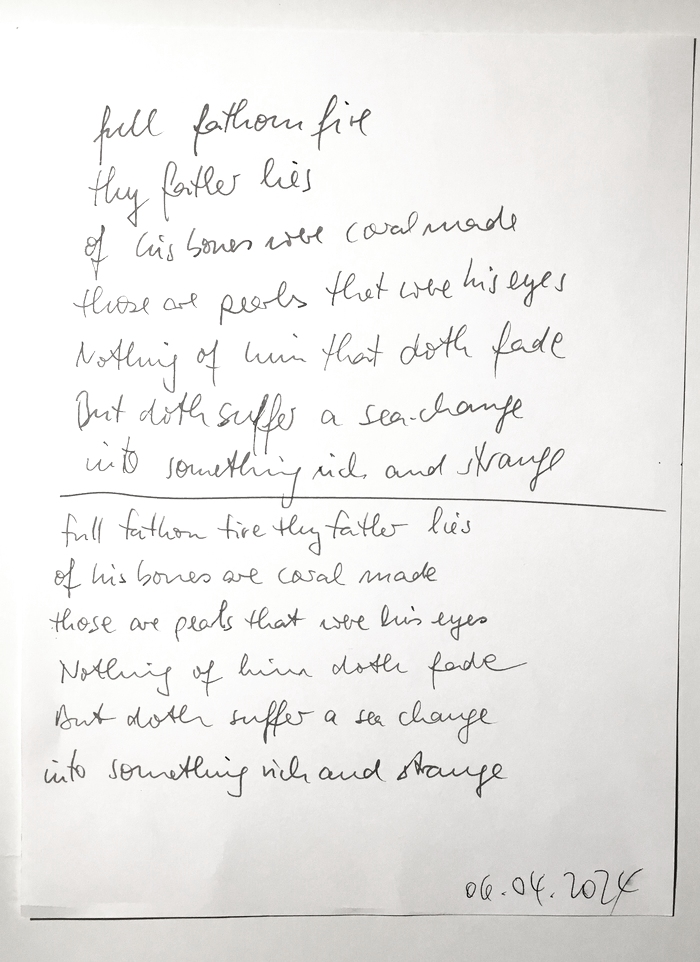 full fathom five
thy father lies
of his bones were coral made
those are pearls that were his eyes
Nothing of him that doth fade
But doth suffer a sea-change
into something rich and strange
full fathom five thy father lies
of his bones are coral made
those are pearls that were his eyes
Nothing of him doth fade
But doth suffer a sea change
into something rich and strange
06.04.2024